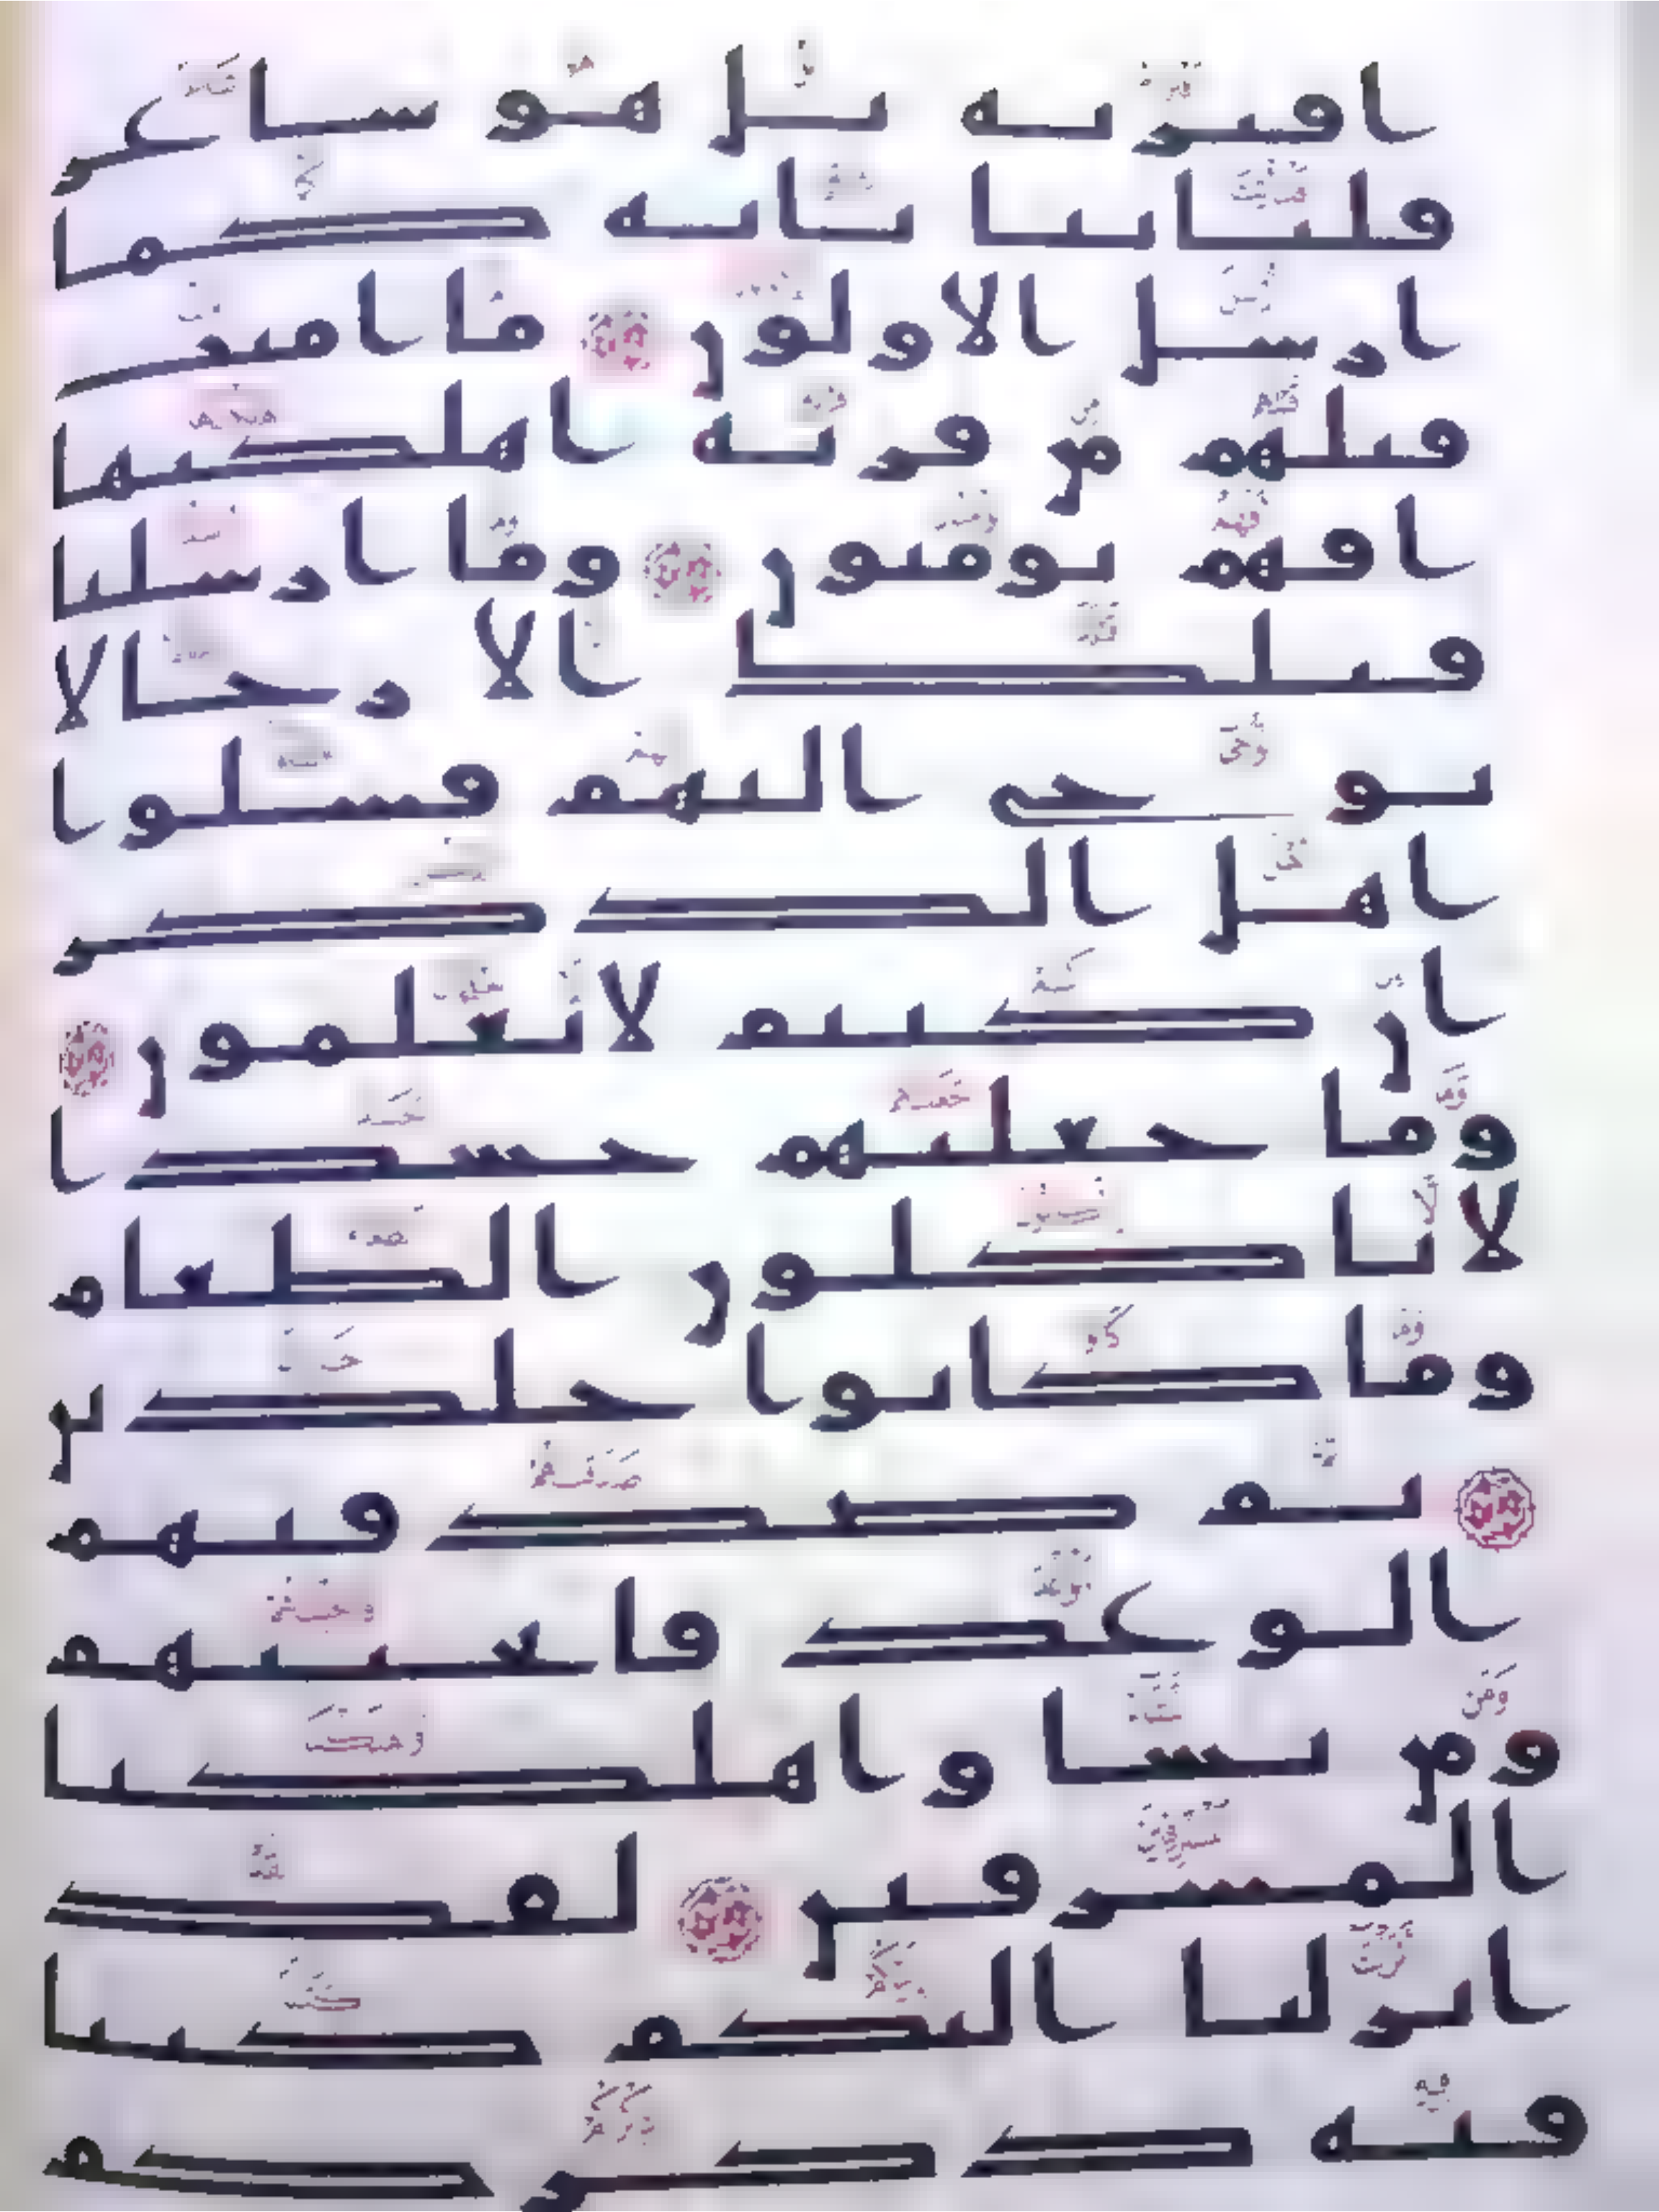 افتريه بل هو شاعر
فلياتنا باية كما
ارسل الاولون ما امنت
قبلهم من قرية اهلكنها
افهم يومنون وما ارسلنا
قبلك الا رجالا
نوحي اليهم فسلوا
اهل الذكر
ان كنتم لا تعلمون
وما جعلنهم جسدا
لا ياكلون الطعام
وما كانوا خلدين
ثم صدقنهم
الوعد فانجينهم
ومن نشا واهلكنا
المسرفين لقد
انزلنا اليكم كتبا
فيه ذكركم